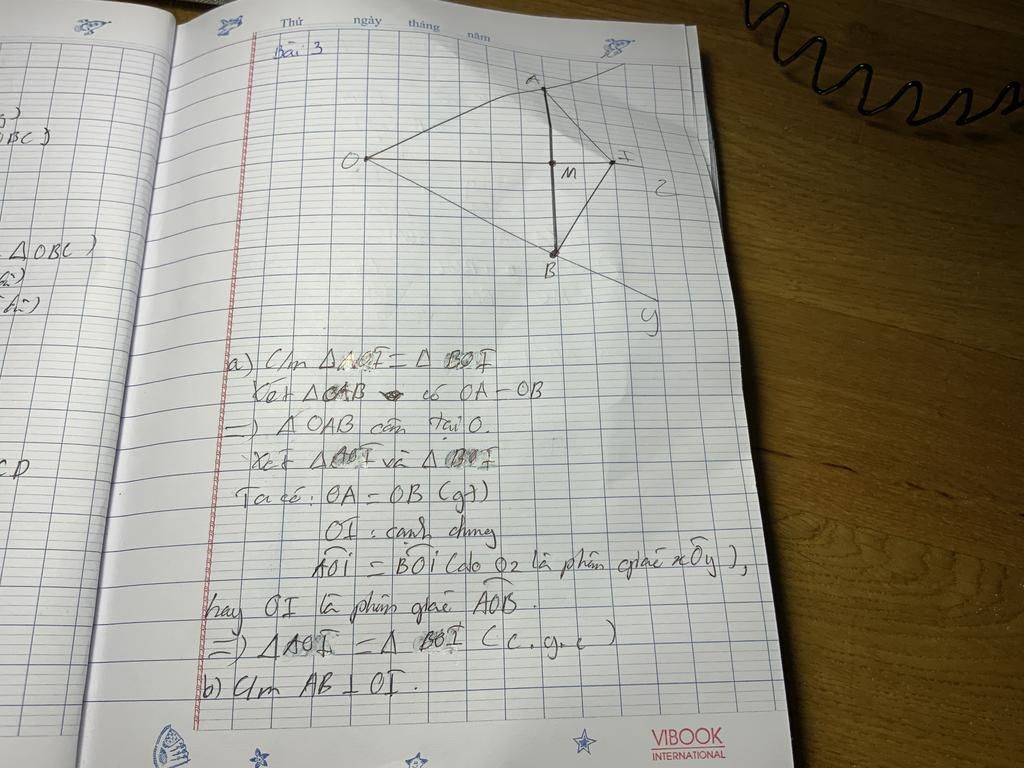 Thứ ngày tháng năm
Bài 3
A
O
M
I
z
B
y
)
OBC)
ΔOBC)
CD
a) C/m ΔAOI = Δ BOI
Xét ΔOAB có OA = OB
=) Δ OAB cân tại O.
Xét ΔAOI và Δ BOI
Ta có: OA = OB (gt)
OI: cạnh chung
AÔI = BÔI (do Oz là phân giác xÔy),
hay OI là phân giác AÔB.
=) ΔAOI = Δ BOI (c.g.c)
b) C/m AB ⊥ OI.
VIBOOK
INTERNATIONAL